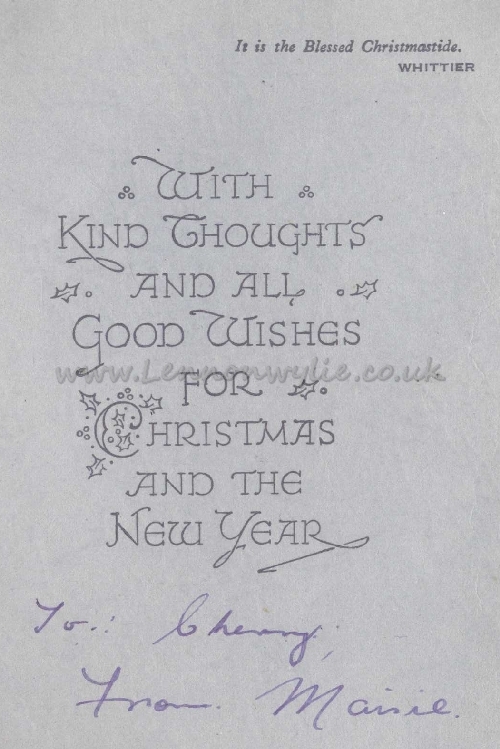 It is the Blessed Christmastide.
WHITTIER
WITH
KIND THOUGHTS
AND ALL
GOOD WISHES
www.Lennonwylie.co.uk
FOR
CHRISTMAS
AND THE
NEW YEAR
To: Cherry,
From. Maisie.